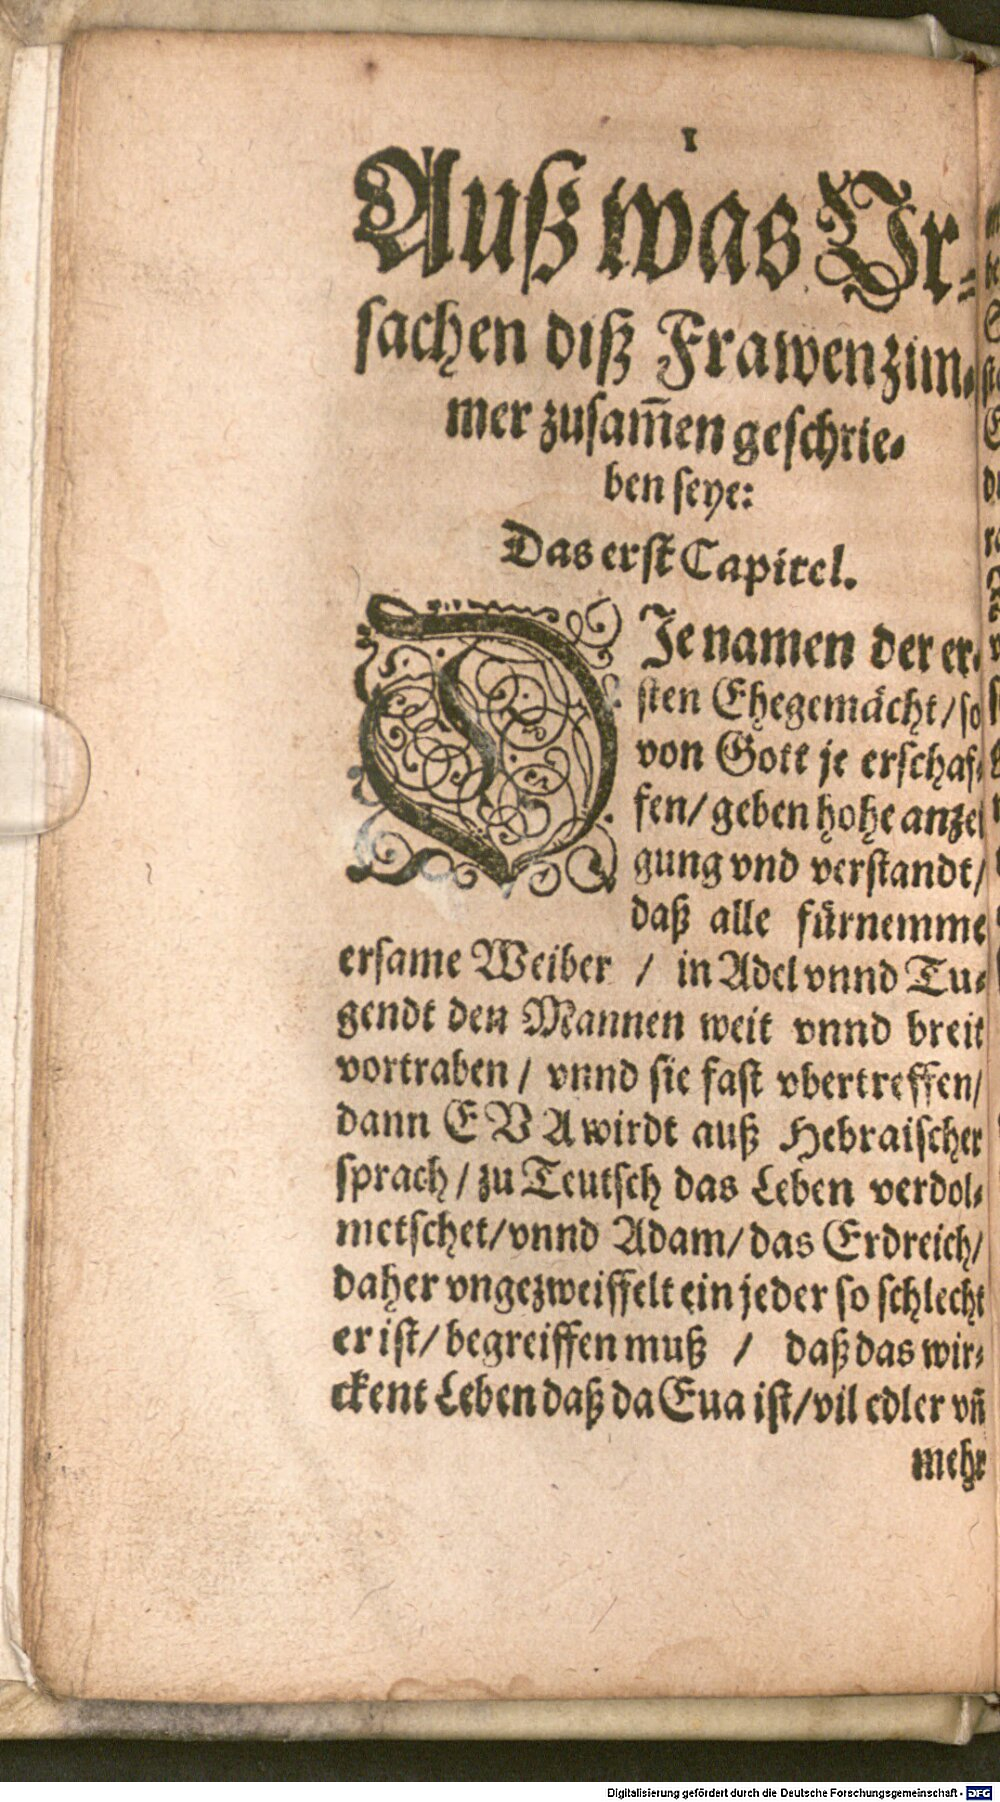 1
Auß was Vr⸗
sachen diß Frawenzim⸗
mer zusam̃en geschrie⸗
ben seye:
Das erst Capitel.
DJe namen der er⸗
sten Ehegemächt/ so
von Gott je erschaf⸗
fen/ geben hohe anzei
gung vnd verstandt/
daß alle fürnemme
ersame Weiber / in Adel vnnd Tu⸗
gendt den Mannen weit vnnd breit
vortraben / vnnd sie fast vbertreffen/
dann EVA wirdt auß Hebraischer
sprach / zu Teutsch das Leben verdol⸗
metschet/ vnnd Adam/ das Erdreich/
daher vngezweiffelt ein jeder so schlecht
er ist/ begreiffen muß / daß das wir⸗
ckent Leben daß da Eua ist/ vil edler vñ
mehr
Digitalisierung gefördert durch die Deutsche Forschungsgemeinschaft - DFG